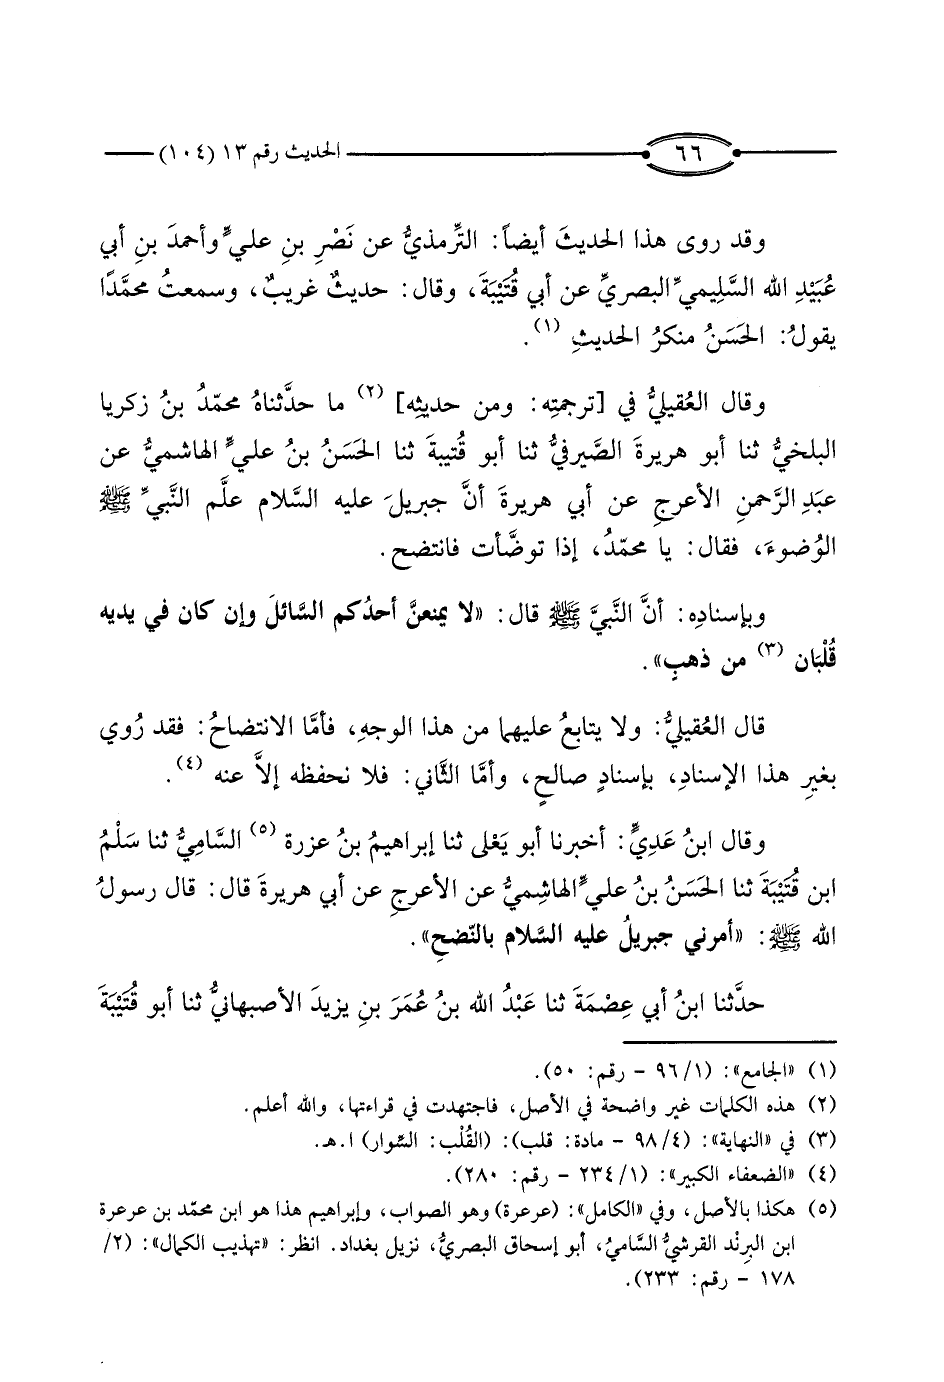 ٦٦ الحديث رقم ١٣ (١٠٤)
وقد روى هذا الحديثَ أيضاً: التِّرمذيُّ عن نَصْرِ بنِ عليٍّ وأحمدَ بنِ أبي
عُبَيْدِ الله السَّلِيمي البصريِّ عن أبي قُتَيْبَةَ، وقال: حديثٌ غريبٌ، وسمعتُ محمَّدًا
يقولُ: الحَسَنُ منكرُ الحديثِ (١).
وقال العُقيليُّ في [ترجمتِه: ومن حديثِه] (٢) ما حدَّثناهُ محمّدُ بنُ زكريا
البلخيُّ ثنا أبو هريرةَ الصَّيرفيُّ ثنا أبو قُتيبةَ ثنا الحَسَنُ بنُ عليٍّ الهاشميُّ عن
عبَدِ الرَّحمنِ الأعرجِ عن أبي هريرةَ أنَّ جبريلَ عليه السَّلام علَّم النَّبيَّ ﷺ
الوُضوءَ، فقال: يا محمّدُ، إذا توضَّأت فانتضح.
وبإسنادِه: أنَّ النَّبيَّ ﷺ قال: «لا يمنعنَّ أحدُكم السَّائلَ وإن كان في يديه
قُلْبَان (٣) من ذهبٍ».
قال العُقيليُّ: ولا يتابعُ عليهما من هذا الوجهِ، فأمَّا الانتضاحُ: فقد رُوي
بغيرِ هذا الإسنادِ، بإسنادٍ صالحٍ، وأمَّا الثَّاني: فلا نحفظه إلاَّ عنه (٤).
وقال ابنُ عَدِيٍّ: أخبرنا أبو يَعْلى ثنا إبراهيمُ بنُ عزرة (٥) السَّامِيُّ ثنا سَلْمُ
ابن قُتَيْبَةَ ثنا الحَسَنُ بنُ عليٍّ الهاشِميُّ عن الأعرجِ عن أبي هريرةَ قال: قال رسولُ
الله ﷺ: «أمرني جبريلُ عليه السَّلام بالنّضحِ».
حدَّثنا ابنُ أبي عِصْمَةَ ثنا عَبْدُ الله بنُ عُمَرَ بنِ يزيدَ الأصبهانيُّ ثنا أبو قُتَيْبَةَ
(١) «الجامع»: (٩٦/١ - رقم: ٥٠).
(٢) هذه الكلمات غير واضحة في الأصل، فاجتهدت في قراءتها، والله أعلم.
(٣) في «النهاية»: (٩٨/٤ - مادة: قلب): (القُلْب: السَّوار) ا.هـ.
(٤) «الضعفاء الكبير»: (٢٣٤/١ - رقم: ٢٨٠).
(٥) هكذا بالأصل، وفي «الكامل»: (عرعرة) وهو الصواب، وإبراهيم هذا هو ابن محمّد بن عرعرة
ابن البرِنْد القرشيُّ السَّاميُ، أبو إسحاق البصريُّ، نزيل بغداد. انظر: «تهذيب الكمال»: (٢/
١٧٨ - رقم: ٢٣٣).